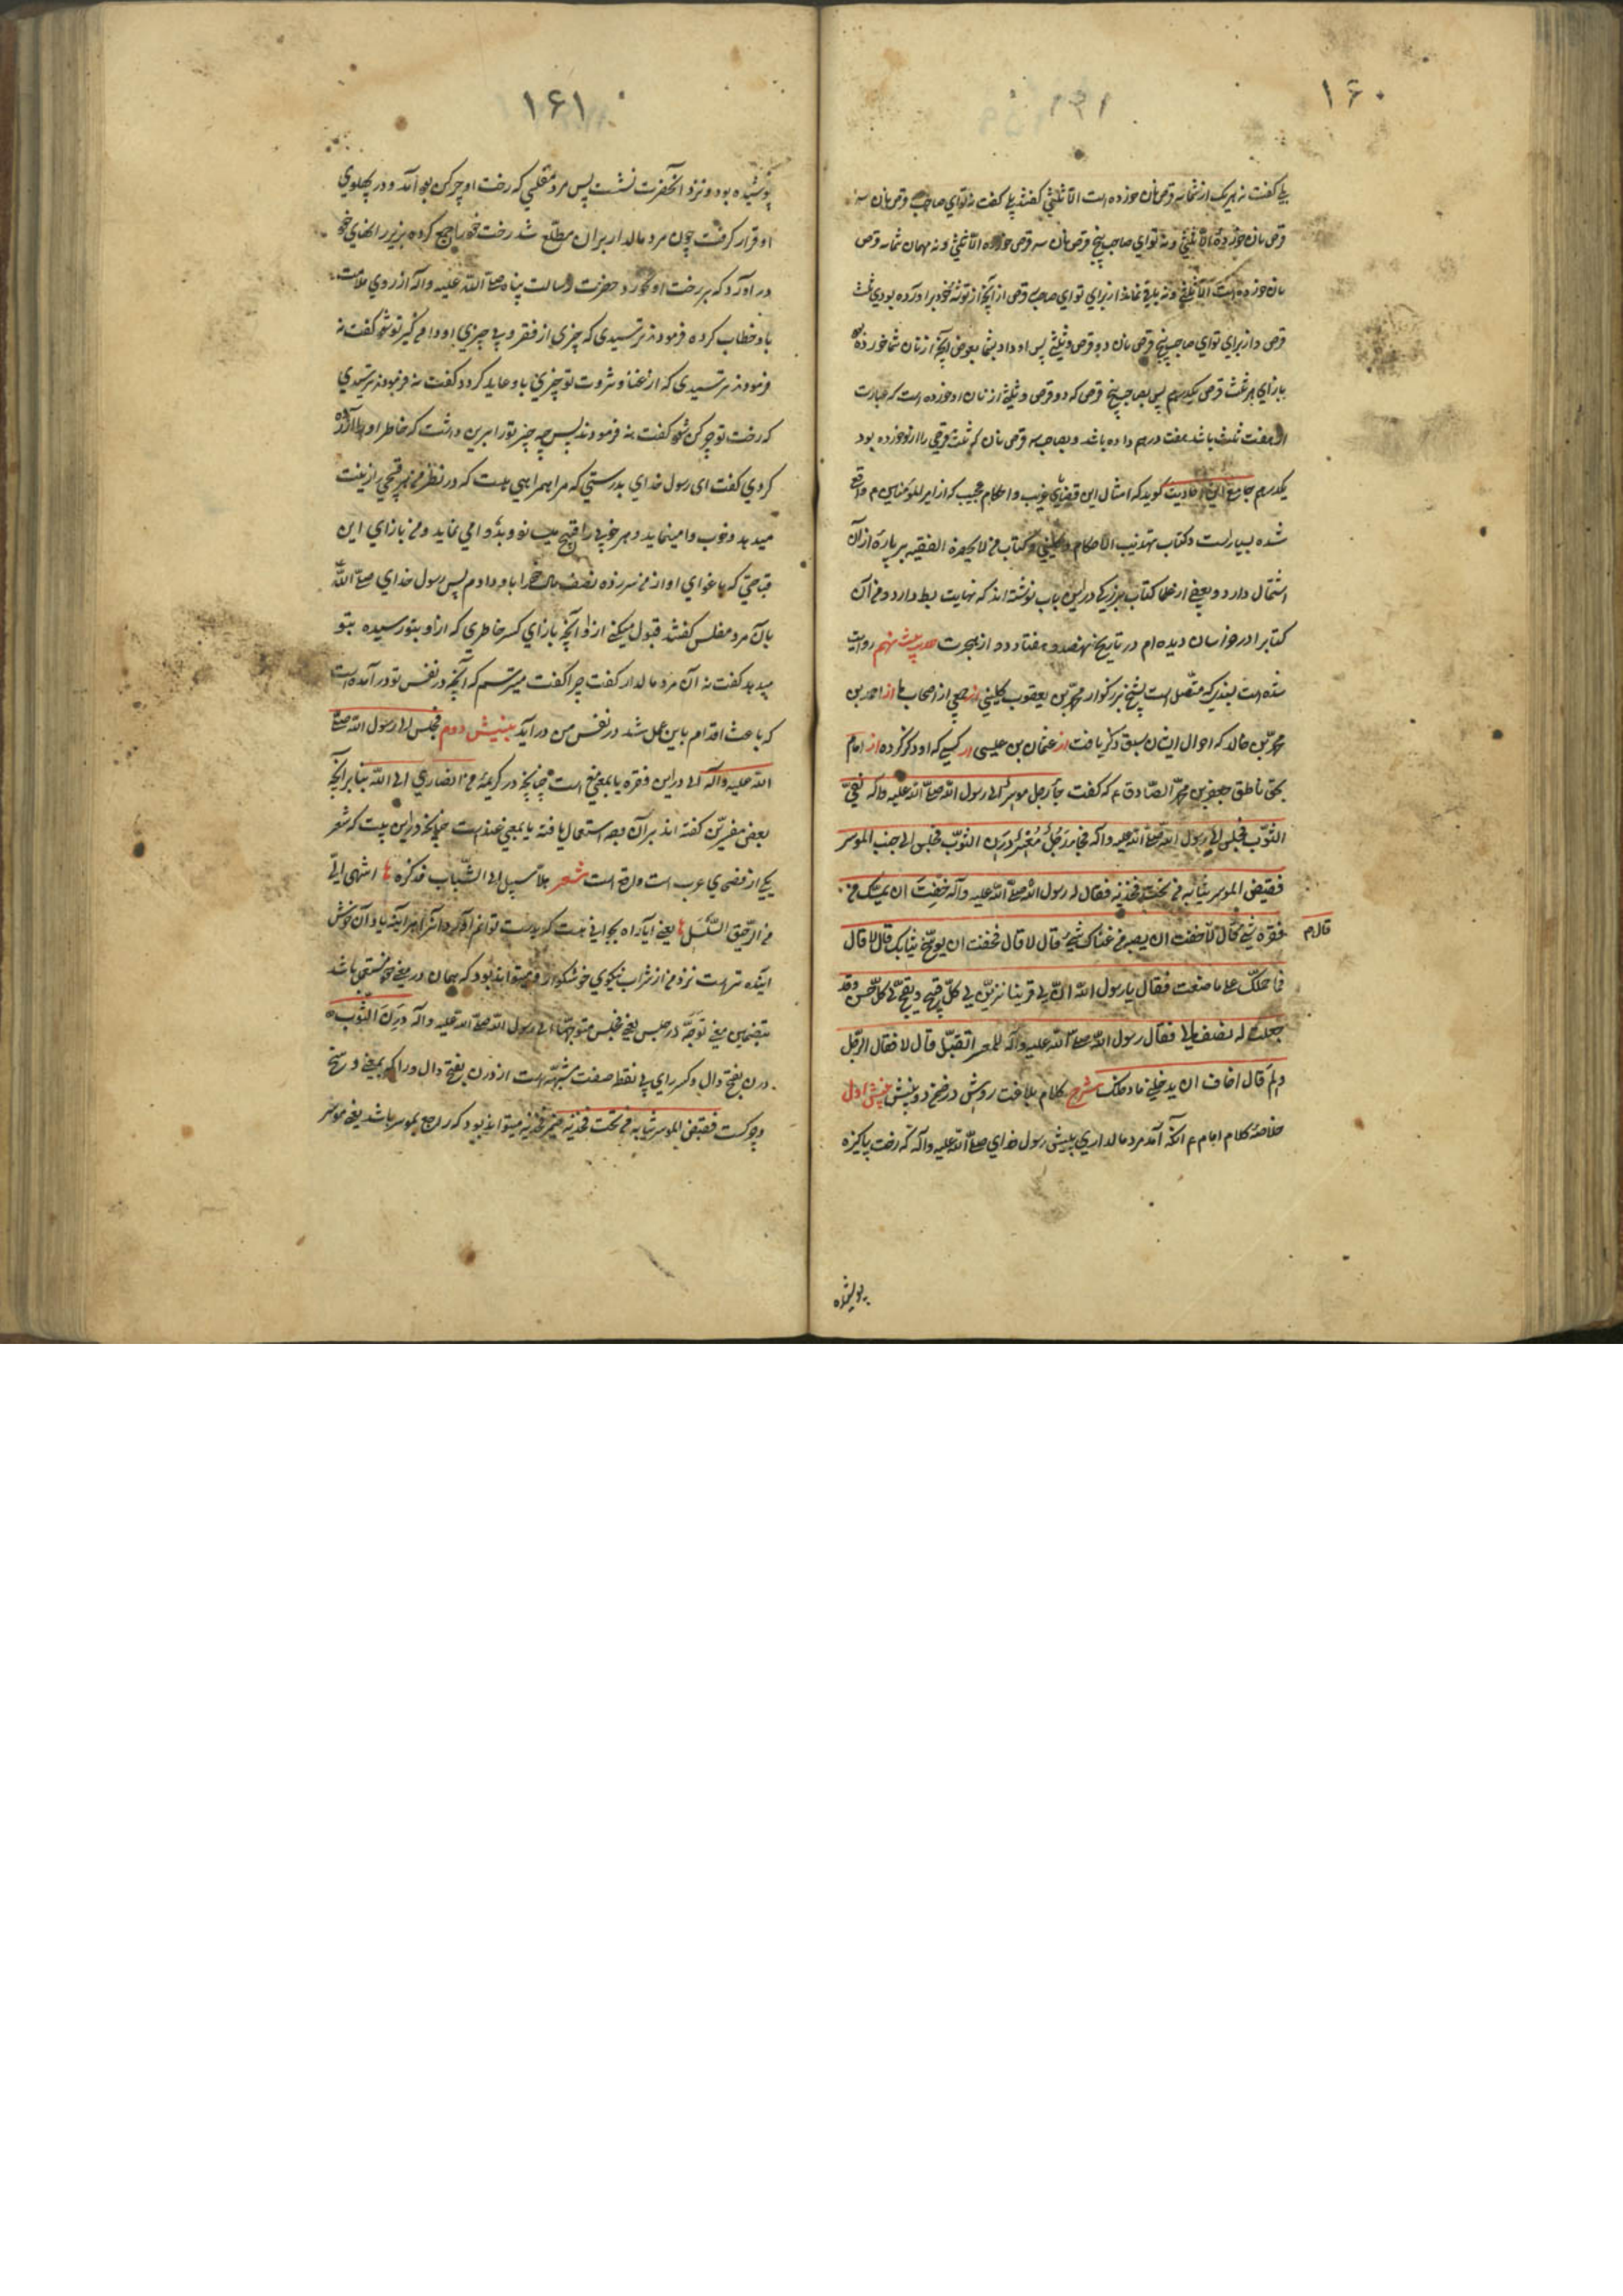 ۱۶۰
بلی گفت نه هر یک از شما سه قرص نان خورده است الا ثلثی گفتند بلی گفت نه تو ای صاحب قرص نان سه
قرص نان خورده الا ثلثی و نه تو ای صاحب پنج قرص نان سه قرص خورده الا ثلثی و نه مهمان شما سه قرص
نان خورده است الا ثلثی و نه باقی نماند از برای تو ای صاحب سه قرص از آنچه از توشه خود برآورده بودی ثلث
قرص و از برای تو ای صاحب پنج قرص نان دو قرص و ثلثی پس او داد بشما بعوض آنچه از نان شما خورده بود
بازای هر ثلث قرص یکدرهم پس بصاحب پنج قرص که دو قرص و ثلثی از نان او خورده است که عبارت
از هفت ثلث باشد هفت درهم داده باشد و بصاحب سه قرص نان که ثلث قرصی را از او خورده بود
یکدرهم جامع این احادیث گوید که امثال این قضایای غریب و احکام عجیب که از امیر المؤمنین م واقع
شده بسیار است و کتاب تهذیب الاحکام و کلینی و کتاب من لا یحضره الفقیه بر پاره از آن
اشتمال دارد و بعضی از علما کتاب بزرگی در این باب نوشته‌اند که نهایت بسط دارد و من آن
کتابرا در خراسان دیده‌ام در تاریخ نهصد و هفتاد و دو از هجرت حدیث بیست نهم روایت
شده است بسندی که متصل است بشیخ بزرگوار محمد بن یعقوب کلینی از جمعی از اصحاب ما از احمد بن
محمد بن خالد که احوال ایشان سبق ذکر یافت از عثمان بن عیسی از کسی که او ذکر کرده از امام
بحق ناطق جعفر بن محمد الصادق ع که گفت جاء رجل موسر الی رسول الله صلی الله علیه وآله نقی
الثوب فجلس الی رسول الله صلی الله علیه وآله فجاء رجل معسر درن الثوب فجلس الی جنب الموسر
فقبض الموسر ثیابه من تحت فخذیه فقال له رسول الله صلی الله علیه وآله خفت ان یمسک من
فقره شیء قال لا قال فخفت ان یصیبه من غناک شیء قال لا قال فخفت ان یوسخ ثیابک قال لا قال
فما حملک علی ما صنعت فقال یا رسول الله ان لی قرینا یزین لی کل قبیح و یقبح لی کل حسن و قد
جعلت له نصف مالی فقال رسول الله صلی الله علیه وآله للمعسر اتقبل قال لا فقال الرجل
ولم قال اخاف ان یدخلنی ما دخلک شرح کلام بلاغت روش در ضمن دو بینش بینش اول
خلاصه کلام امام ع آنکه آمد مرد مالداری به پیش رسول خدای صلی الله علیه وآله که رخت پاکیزه
پوشیده
۱۶۱
پوشیده بود و نزد آنحضرت نشست پس مرد مفلسی که رخت او چرکن بود آمد و در پهلوی
او قرار گرفت چون مرد مالدار بر آن مطلع شد رخت خود را جمع کرده بزیر رانهای خود
در آورد که بر رخت او نخورد حضرت رسالت پناه صلی الله علیه وآله از روی ملامت
باو خطاب کرده فرمودند ترسیدی که چیزی از فقر و بی چیزی او دامن گیر تو شود گفت نه
فرمودند ترسیدی که از غنا و ثروت تو چیزی باو عاید گردد گفت نه فرمودند ترسیدی
که رخت تو چرکن شود گفت نه فرمودند پس چه چیز تو را برین داشت که خاطر او را آزرده
کردی گفت ای رسول خدای بدرستی که مرا همراهی هست که در نظر من هر قبیحی را زینت
میدهد و خوب وا مینماید و هر خوبی را قبیح میسازد و بد وا می نماید و من بازای این
قباحتی که باغوای او از من سر زده نصف مال خود را باو دادم پس رسول خدای صلی الله
بآن مرد مفلس گفتند قبول میکنی از او آنچه بازای کسر خاطری که از او بتو رسیده بتو
میدهد گفت نه آن مرد مالدار گفت چرا گفت میترسم که آنچه در نفس تو در آمده است
که باعث اقدام باین عمل شد در نفس من در آید بینش دوم فجلس الی رسول الله صلی
الله علیه وآله الی در این فقره یا بمعنی مع است چنانچه در کریمه من انصاری الی الله بنا بر آنچه
بعضی مفسرین گفته‌اند بر آن وجه استعمال یافته یا بمعنی عند است چنانچه در این بیت که شعر
یکی از فصحای عرب است واقع است شعر هلا سبیل الی الشباب فذکره اشهی الی
من الرحیق السلسل یعنی آیا راه بجوانی هست
آینده تر است نزد من از شراب نیکوی خوشگوار و میتواند بود که همان در معنی خود مستعمل باشد
بتضمین معنی توجه در جلس یعنی فجلس متوجها الی رسول الله صلی الله علیه وآله درن الثوب
درن بفتح دال و کسر رای بی نقطه صفت مشبهه است از درن بفتح دال و را که بمعنی وسخ
و چرکست فقبض الموسر ثیابه من تحت فخذیه ضمیر فخذیه میتواند بود که راجع بموسر باشد یعنی موسر